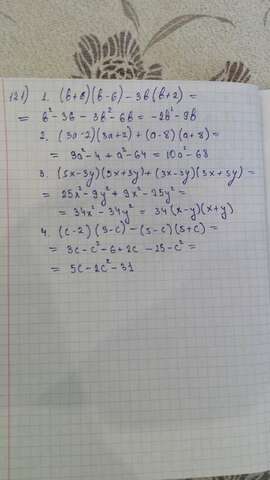 121) 1. (b+3)(b-6) - 3b(b+2) =
= b² - 3b - 3b² - 6b = -2b² - 9b
2. (3a-2)(3a+2) + (a-8)(a+8) =
= 9a² - 4 + a² - 64 = 10a² - 68
3. (5x-3y)(5x+3y) + (3x-5y)(3x+5y) =
= 25x² - 9y² + 9x² - 25y² =
= 34x² - 34y² = 34(x-y)(x+y)
4. (c-2)(3-c) - (5-c)(5+c) =
= 3c - c² - 6 + 2c - 25 - c² =
= 5c - 2c² - 31